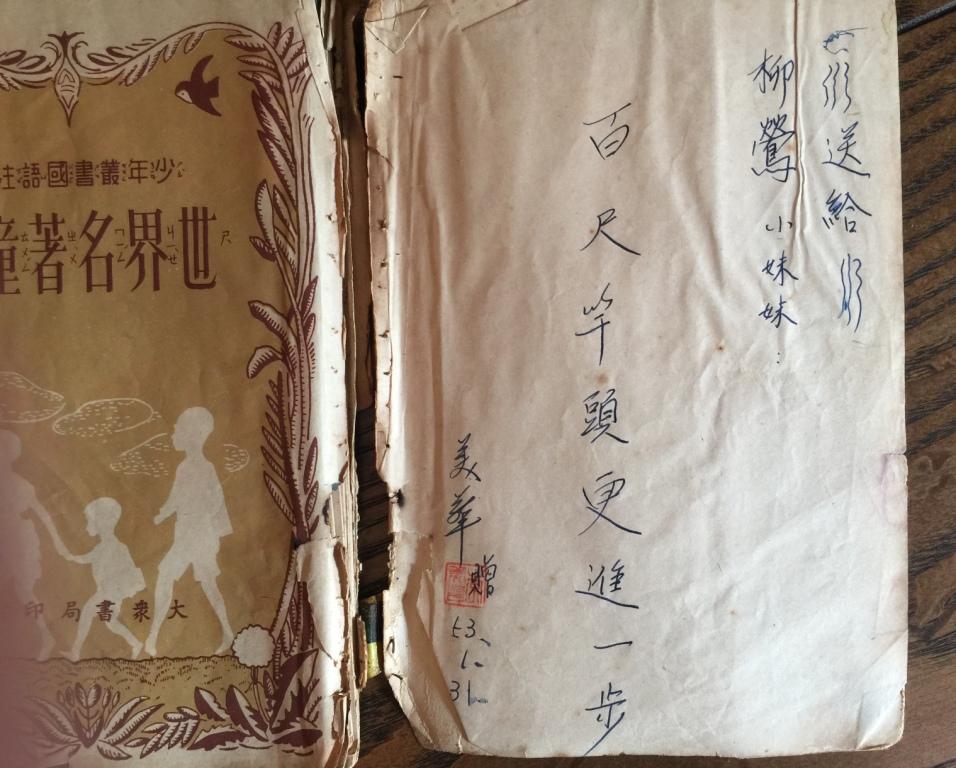 少年叢書國語注
世界名著童
大衆書局印
送給
柳鶯小妹妹：
百尺竿頭更進一步
美華贈
53、1、31